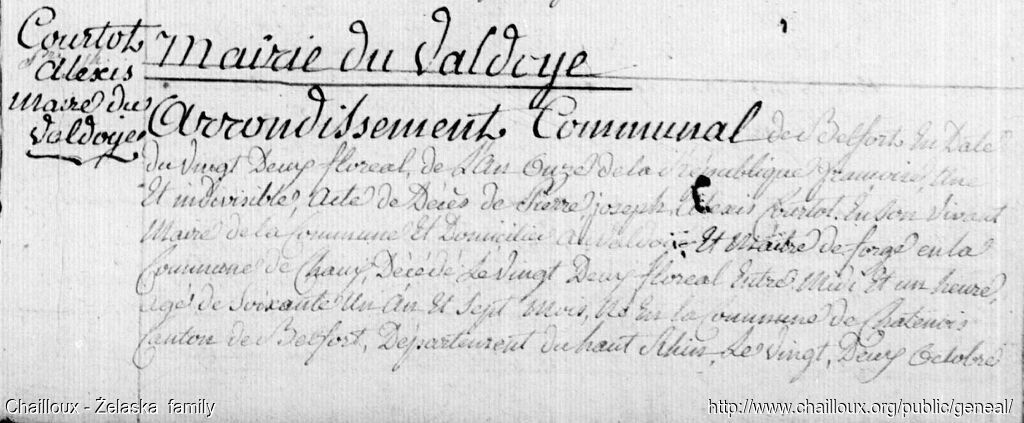 Courtot
Alexis
Maire du
Valdoye
Mairie du Valdoye
Arrondissement Communal de Belfort En Date
du vingt Deux floreal, de L'An Onze de la république françoise, une
Et indivisible, Acte de Décès de Pierre joseph Alexis Courtot En Son Vivant
Maire de la Commune Et Domicilié au Valdoie Et Maître de forge en la
Commune de Chaux, Décédé Le vingt Deux floreal Entre Midi Et un heure,
agé de Soixante Un An Et Sept Mois, Né En la Commune de Chatenois
Canton de Belfort, Département du haut Rhin, Le vingt, Deux Octobre
Chailloux - Żelaska family
http://www.chailloux.org/public/geneal/